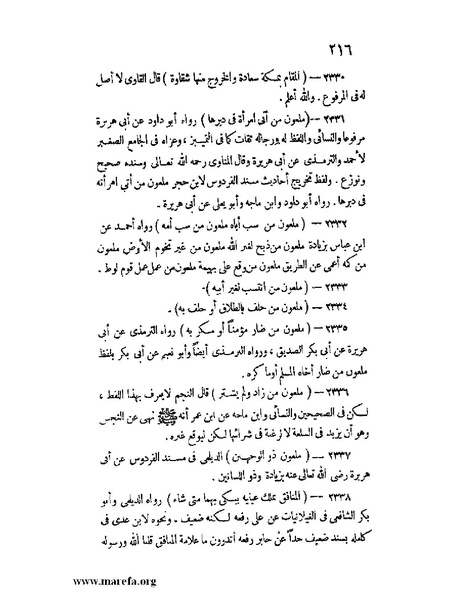 ٢١٦
٢٣٣٠ — ( المقام بمكة سعادة والخروج منها شقاوة ) قال القاوى لا أصل
له فى المرفوع . والله أعلم .
٢٣٣١ — (ملعون من أتى امرأة فى دبرها ) رواه أبو داود عن أبى هريرة
مرفوعا والنسائى واللفظ له ورجاله ثقات كما فى التمييز ، وعزاه فى الجامع الصغير
لأحمد والترمذى عن أبى هريرة وقال المناوى رحمه الله تعالى وسنده صحيح
ونوزع . ولفظ تخريج أحاديث مسند الفردوس لابن حجر ملعون من أتى امرأته
فى دبرها . رواه أبو داود وابن ماجه وأبو يعلى عن أبى هريرة .
٢٣٣٢ — ( ملعون من سب أباه ملعون من سب أمه ) رواه أحمد عن
ابن عباس بزيادة ملعون من ذبح لغير الله ملعون من غير تخوم الأرض ملعون
من كمه أعمى عن الطريق ملعون من وقع على بهيمة ملعون من عمل عمل قوم لوط .
٢٣٣٣ — ( ملعون من انتسب لغير أبيه )-
٢٣٣٤ — ( ملعون من حلف بالطلاق أو حلف به) .
٢٣٣٥ — ( ملعون من ضار مؤمناً أو مكر به ) رواه الترمذى عن أبى
هريرة عن أبى بكر الصديق ، ورواه الترمذى أيضاً وأبو نعيم عن أبى بكر بلفظ
ملعون من ضار أخاه المسلم أوما كره .
٢٣٣٦ — ( ملعون من زاد ولم يشتر ) قال النجم لايعرف بهذا اللفظ ،
لكن فى الصحيحين والنسائى وابن ماجه عن ابن عمر أنه ﷺ نهى عن النجس
وهو أن يزيد فى السلعة لا لرغبة فى شرائها لكن ليوقع غيره .
٢٣٣٧ — ( ملعون ذو الوجهين ) الديلمى فى مسند الفردوس عن أبى
هريرة رضى الله تعالى عنه بزيادة وذو اللسانين .
٢٣٣٨ — ( المنافق يملك عينيه يبكى بهما متى شاء ) رواه الديلمى وأبو
بكر الشافعى فى الغيلانيات عن على رفعه لكنه ضعيف . ونحوه لابن عدى فى
كامله بسند ضعيف جداً عن جابر رفعه أتدرون ما علامة المنافق قلنا الله ورسوله
www.marefa.org